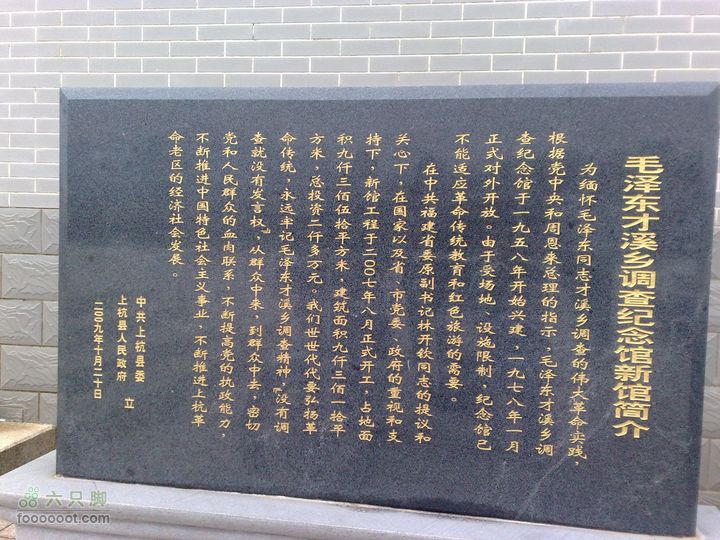 毛泽东才溪乡调查纪念馆新馆简介
为缅怀毛泽东同志才溪乡调查的伟大革命实践，
根据党中央和周恩来总理的指示，毛泽东才溪乡调
查纪念馆于一九五八年开始兴建，一九七八年一月
正式对外开放。由于受场地、设施限制，纪念馆已
不能适应革命传统教育和红色旅游的需要。
在中共福建省委原副书记林开钦同志的提议和
关心下，在国家以及省、市党委、政府的重视和支
持下，新馆工程于二00七年八月正式开工，占地面
积九仟三佰伍拾平方米，建筑面积九仟三佰一拾平
方米，总投资二仟多万元。我们世世代代要弘扬革
命传统，永远牢记毛泽东才溪乡调查精神，“没有调
查就没有发言权”，从群众中来，到群众中去，密切
党和人民群众的血肉联系，不断提高党的执政能力，
不断推进中国特色社会主义事业，不断推进上杭革
命老区的经济社会发展。
中共上杭县委
上杭县人民政府 立
二00九年十月二十日
六只脚
foooooot.com